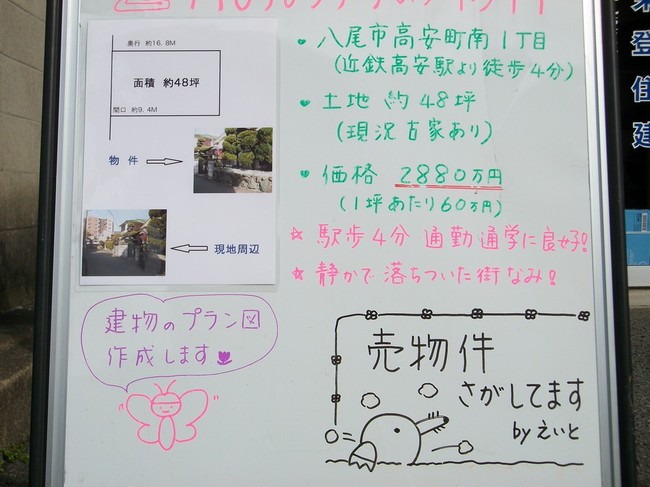 ・八尾市高安町南1丁目
(近鉄高安駅より徒歩4分)
・土地 約48坪
(現況古家あり)
・価格 2880万円
(1坪あたり60万円)
☆駅歩4分 通勤通学に良好!
☆静かで落ちついた街なみ!
奥行 約16.8M
面積 約48坪
間口 約9.4M
物件
現地周辺
建物のプラン図
作成します
売物件
さがしてます
by えいと
登
住
建